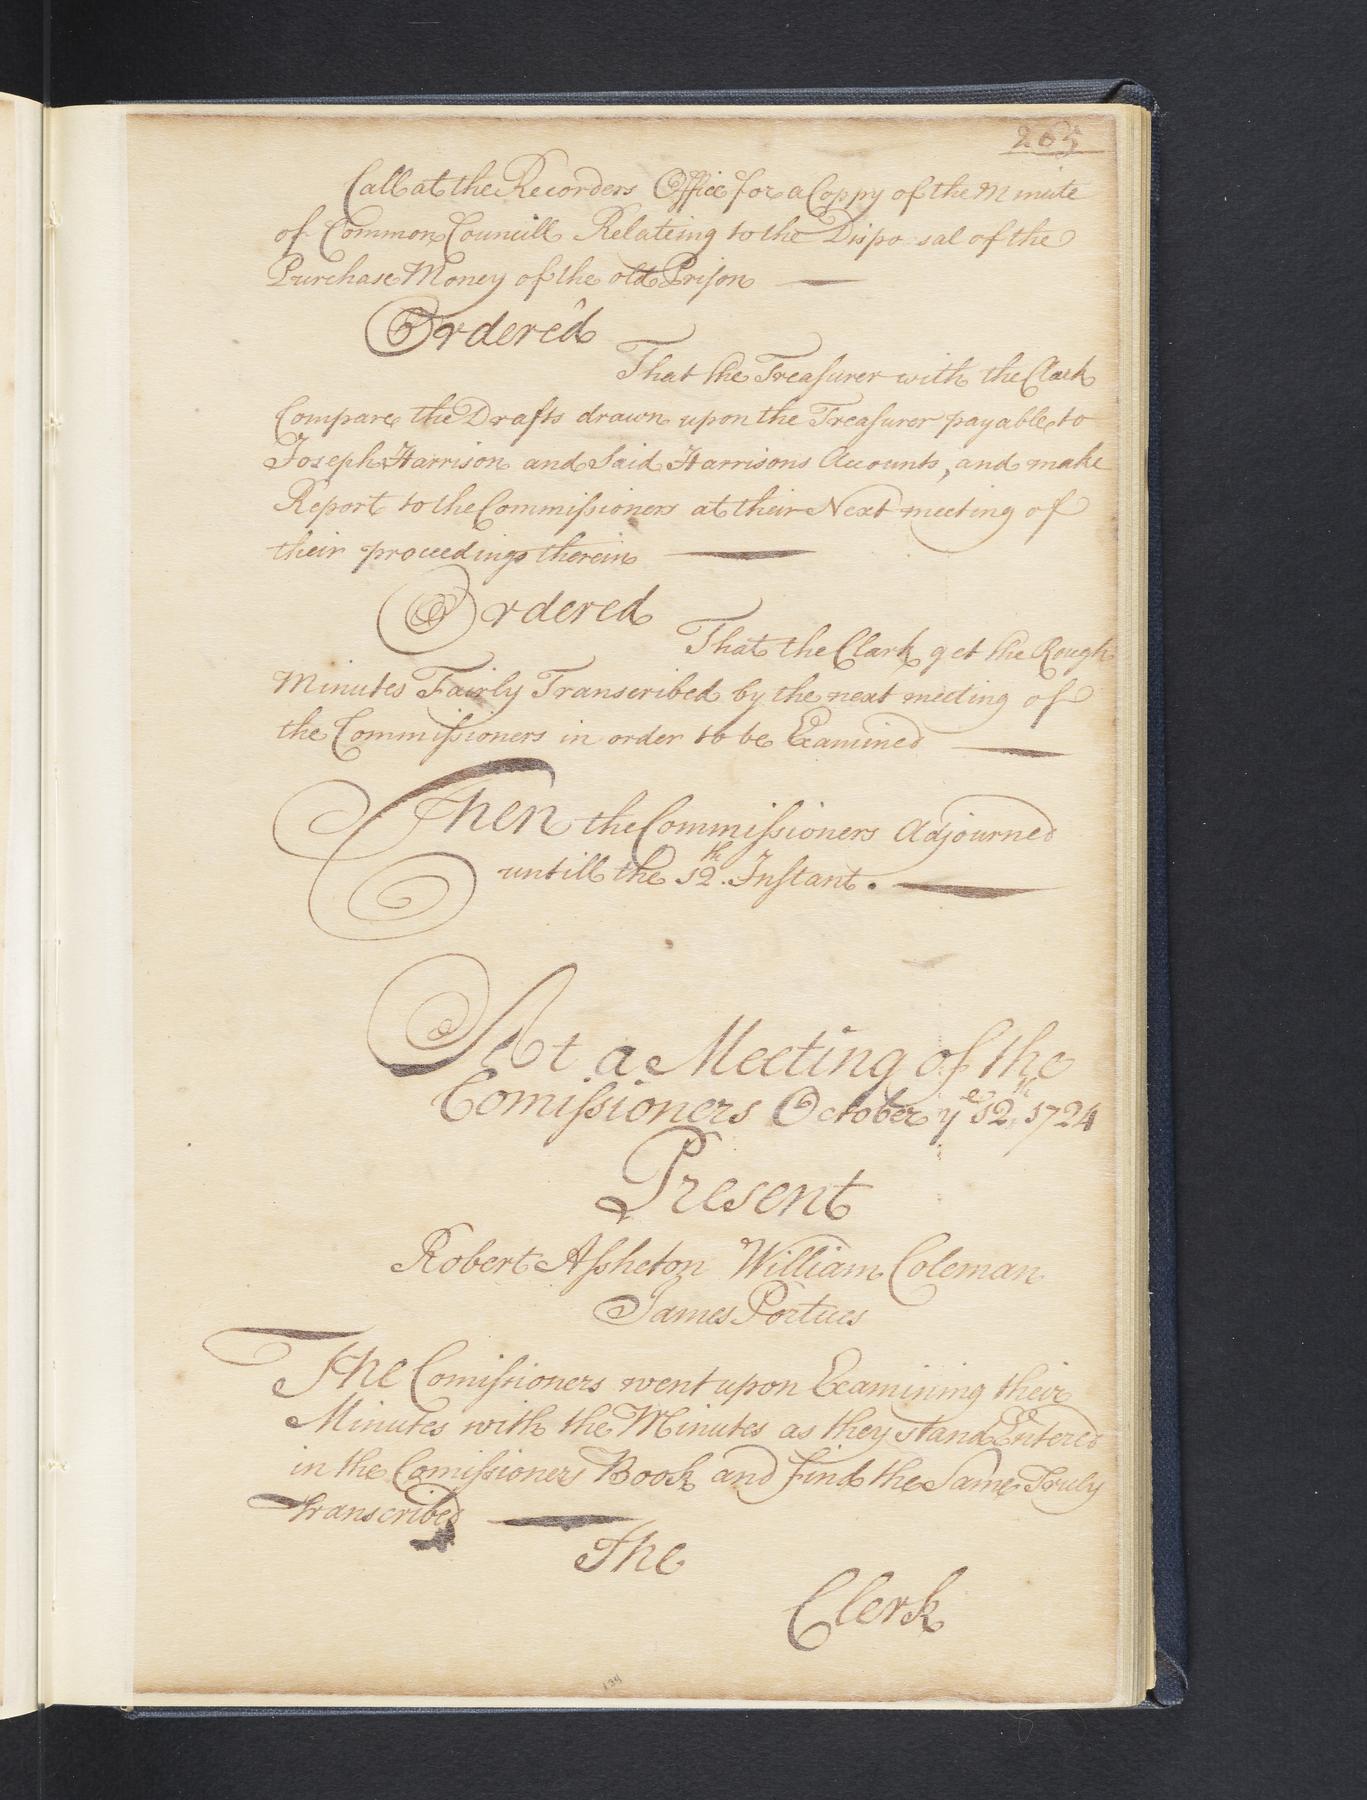 265
Call at the Recorders Office for a Coppy of the Minute
of Common Councill Relateing to the Disposal of the
Purchase Money of the old Prison
Ordered
That the Treasurer with the Clark
Compare the Drafts drawn upon the Treasurer payable to
Joseph Harrison and Said Harrisons Accounts, and make
Report to the Commissioners at their Next meeting of
their proceedings therein
Ordered
That the Clark get the Rough
Minutes Fairly Transcribed by the next meeting of
the Commissioners in order to be Examined
Then the Commissioners Adjourned
untill the 12th. Instant.
At a Meeting of the
Comissioners October ye 12th, 1724
Present
Robert Assheton William Coleman
James Portues
The Comissioners went upon Examining their
Minutes with the Minutes as they stand Entered
in the Comissioners Book and find the Same Truly
Transcribed
The
Clerk
134